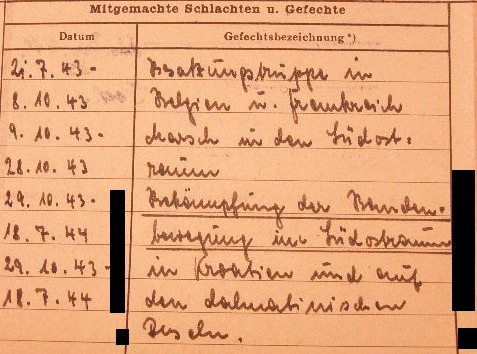 Mitgemachte Schlachten u. Gefechte
Datum Gefechtsbezeichnung *)
21. 7. 43 - Besatzungstruppe in
8. 10. 43 Belgien u. Frankreich
9. 10. 43 - Marsch in den Südost-
28. 10. 43 raum
29. 10. 43 - Bekämpfung der Banden-
18. 7. 44 bewegung im Südostraum
29. 10. 43 - in Kroatien und auf
18. 7. 44 den dalmatinischen
Inseln.